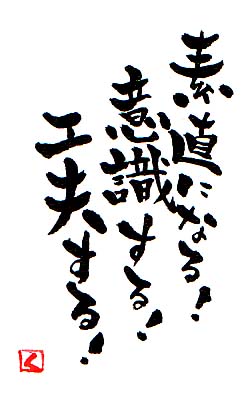 素直になる!
意識する!
工夫する!
く